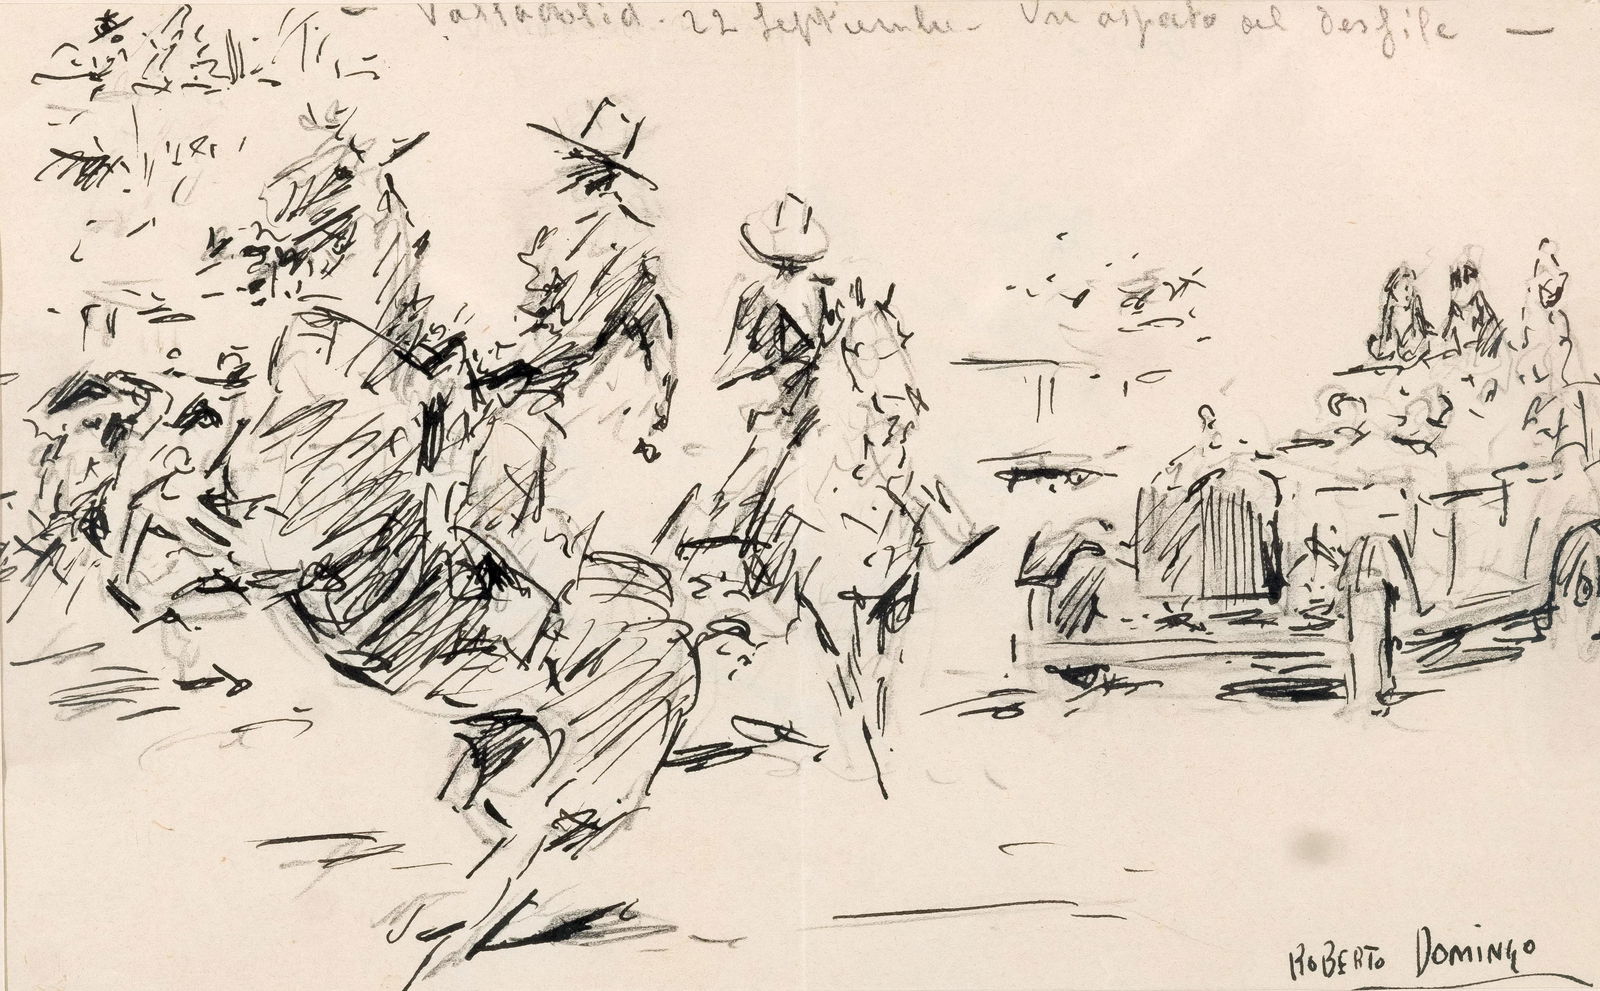 Valladolid. 22 Septiembre - Un aspecto del desfile —
ROBERTO DOMINGO